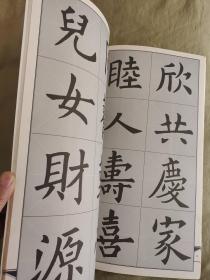 欣共慶家
睦人壽喜
兒女財源